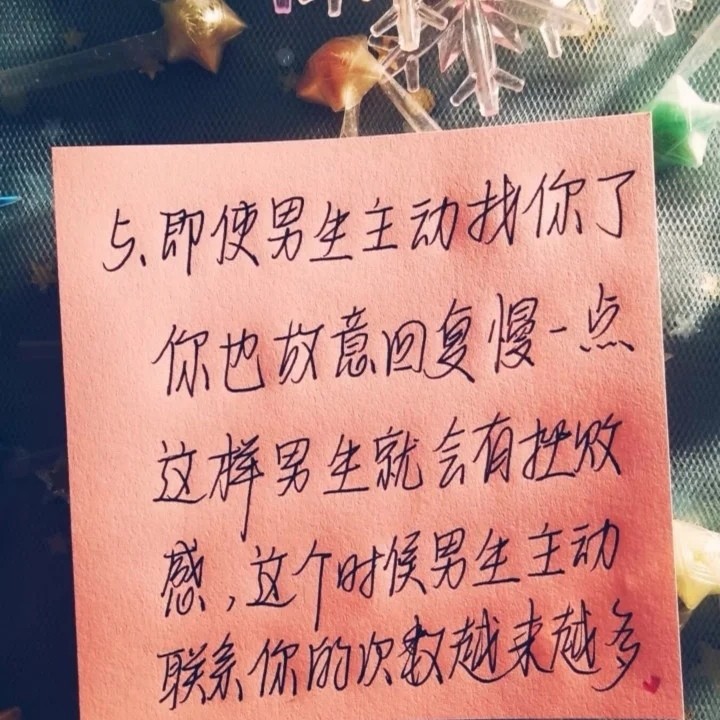 5、即使男生主动找你了
你也故意回复慢一点
这样男生就会有挫败
感，这个时候男生主动
联系你的次数越来越多